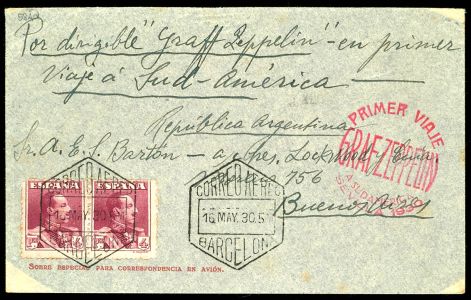 Por dirigible "Graff Zeppelin" - en primer
Viaje á Sud-América
República Argentina
Sr. A. E. S. Barton - a/c Sres. Lockwood y Cía.
756
Buenos Aires
PRIMER VIAJE
GRAF ZEPPELIN
A SUDAMERICA
SEVILLA 1930
ESPAÑA
ESPAÑA
CORREO AEREO
16 MAY. 30. 5
BARCELONA
CORREO AEREO
16 MAY. 30. 5
BARCELONA
SOBRE ESPECIAL PARA CORRESPONDENCIA EN AVIÓN.